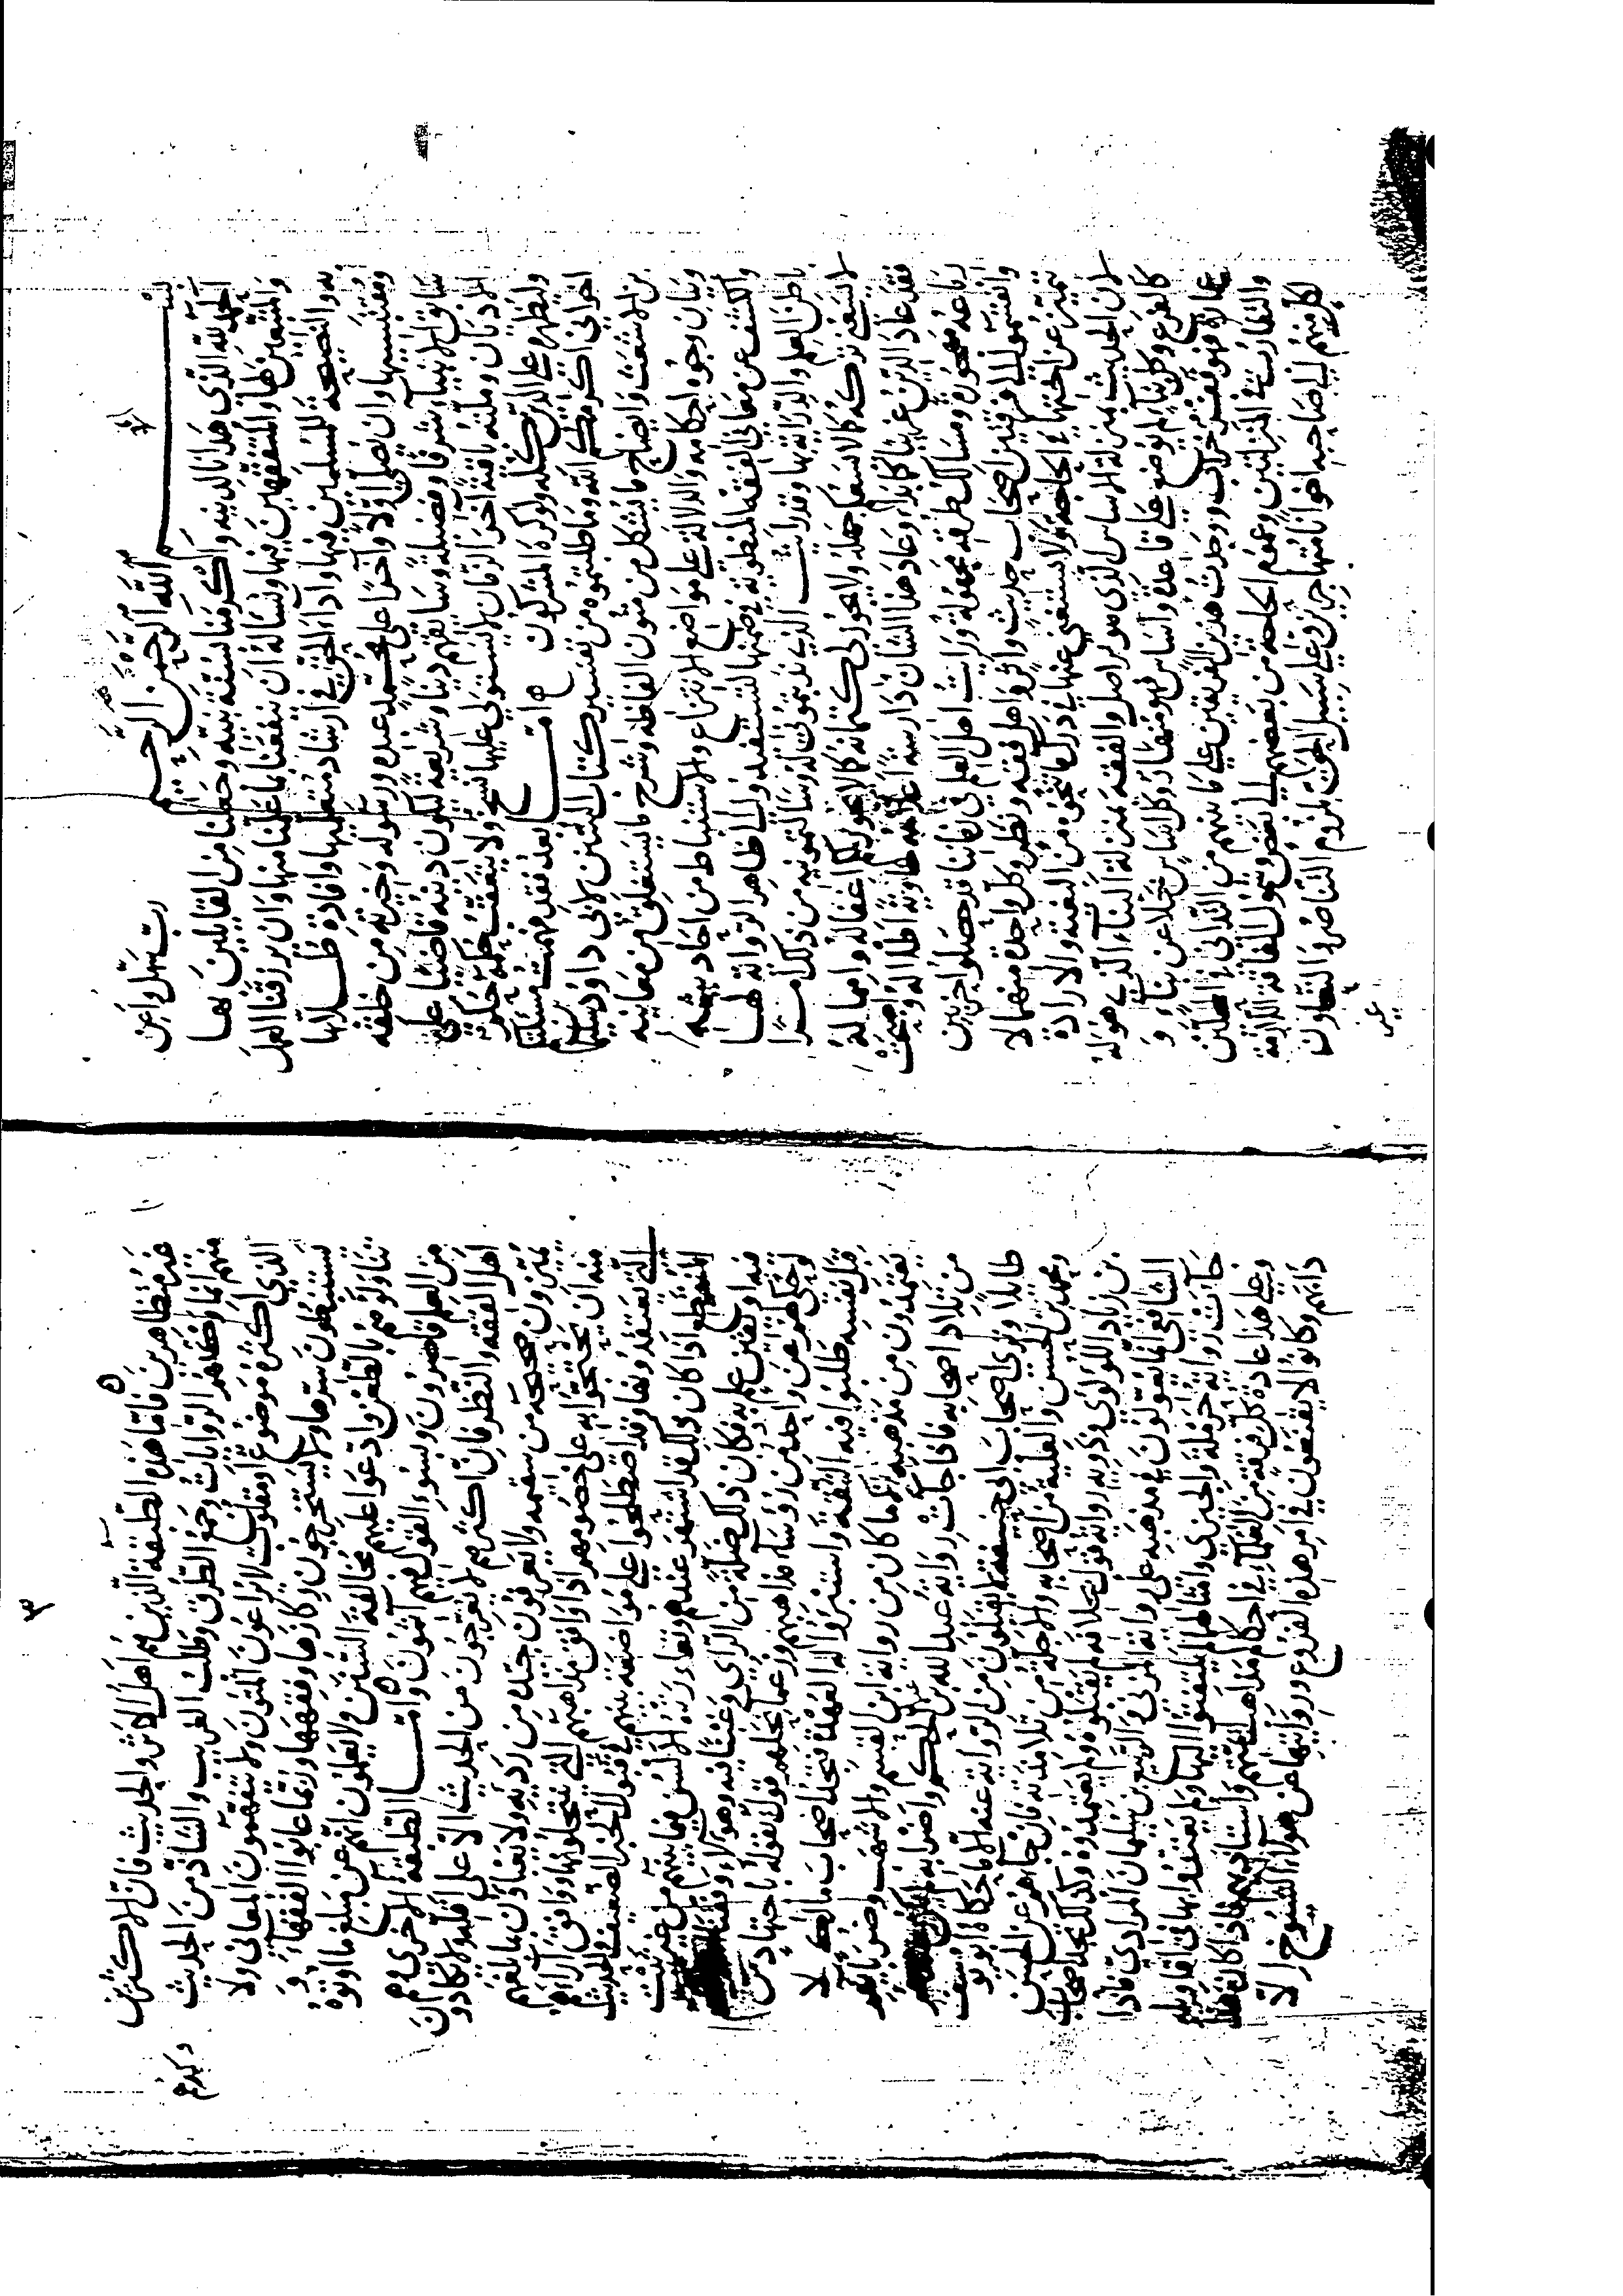 بسم الله الرحمن الرحيم رب يسر واعن
الحمد لله الذي هدانا لدينه واكرمنا بسنة نبيه وجعلنا من القابلين لها
والمتبعين لها والمتفقهين فيها ونساله ان ينفعنا بما علمنا منها وان يرزقنا العمل
به والنصيحة للمسلمين فيها واداء الحق في ارشاد متعلميها وافادة طلابها
ومقتبسيها وان يصلي اولا وآخرا على محمد عبده ورسوله وخيرته من خلقه
سابق الانبياء شرفا وفضيلة وسايقهم دينا وشريعة ليكون دينه قاضيا على
الاديان وملته باقية آخر الزمان لا يستولي عليها نسخ ولا يتعقب حكمه حكم
وليظهره على الدين كله ولو كره المشركون اما بعد فقد فهمت مسئلتكم
اخواني اكرمكم الله وما طلبتموه من تفسير كتاب السنن لابي داود سليمان
بن الاشعث وايضاح ما يشكل من متون الفاظه وشرح ما يستغلق من معانيه
وبيان وجوه احكامه والدلالة على مواضع الانتزاع والاستنباط من احاديثه
والكشف عن معاني الفقه المنطوية في ضمنها لتستفيدوا الى ظاهر الرواية لها
باطن العلم والدراية بها وقد رايت الذي ندبتموني له وسالتمونيه من ذلك امرا
لا يسعني تركه كما لا يسعكم جهله ولا يجوز لي كتمانه كما لا يجوز لكم اغفاله واهماله
فقد عاد الدين غريبا كما بدا وعاد هذا الشان دارسة اعلامه خاوية اطلاله واصبحت
رباعه مهجورة ومسالك طرقه مجهولة ورايت اهل العلم في زماننا قد حصلوا حزبين
وانقسموا الى فرقتين اصحاب حديث واثر واهل فقه ونظر وكل واحدة منهما لا
تتميز عن اختها في الحاجة ولا تستغني عنها في درك ما تنحوه من البغية والارادة
لان الحديث بمنزلة الاساس الذي هو الاصل والفقه بمنزلة البناء الذي هو له
كالفرع وكل بناء لم يوضع على قاعدة واساس فهو منهار وكل اساس خلا عن بناء و
عمارة فهو قفر خراب ووجدت هذين الفريقين على ما بينهم من التداني في المحلين
والتقارب في المنزلتين وعموم الحاجة من بعضهم الى بعض وشمول الفاقة اللازمة
لكل منهم الى صاحبه اخوانا متهاجرين وعلى سبيل الحق بلزوم التناصر والتعاون
غير
٣
غير متظاهرين فاما هذه الطبقة الذين هم اهل الاثر والحديث فان الاكثرين
منهم انما وكدهم الروايات وجمع الطرق وطلب الغريب والشاذ من الحديث
الذي اكثره موضوع او مقلوب لا يراعون المتون ولا يتفهمون المعاني ولا
يستنبطون سيرها ولا يستخرجون ركازها وفقهها وربما عابوا الفقهاء و
تناولوهم بالطعن وادعوا عليهم مخالفة السنن ولا يعلمون انهم عن مبلغ ما اوتوه
من العلم قاصرون وبسوء القول فيهم آثمون واما الطبقة الاخرى وهم
اهل الفقه والنظر فان اكثرهم لا يعرجون من الحديث الا على اقله ولا يكادون
يميزون صحيحه من سقيمه ولا يعرفون جيده من رديه ولا يعباون بما بلغهم
منه ان يحتجوا به على خصومهم اذا وافق مذاهبهم التي ينتحلونها ووافق آراءهم
التي يعتقدونها وقد اصطلحوا على مواضعة بينهم في قبول الخبر الضعيف والحديث
المنقطع اذا كان ذلك قد اشتهر عندهم وتعاورته الالسن فيما بينهم من غير ثبت
فيه او يقين علم به فكان ذلك ضلة من الراي وغبنا فيه وهؤلاء وفقنا الله
لو حكي لهم عن واحد من رؤساء مذاهبهم وزعماء نحلهم قول يقوله باجتهاد من
قبل نفسه طلبوا فيه الثقة واستبروا له العهدة فتجد اصحاب مالك لا
يعتمدون من مذهبه الا ما كان من رواية ابن القسم والاشهب وضربائهم
من تلاد اصحابه فاذا جاءت رواية عبد الله بن عبد الحكم واضرابه لم تكن عندهم
طايلا وترى اصحاب ابي حنيفة لا يقبلون من الرواية عنه الا ما حكاه ابو يوسف
ومحمد بن الحسن والعلية من اصحابه والاجلة من تلامذته فان جاءهم عن الحسن
بن زياد اللؤلؤي وذويه رواية قول بخلافه لم يقبلوه ولم يعتمدوه وكذلك تجد اصحاب
الشافعي انما يعولون في مذهبه على رواية المزني والربيع بن سليمان المرادي فاذا
جاءت رواية حرملة والجيزي وامثالهما لم يلتفتوا اليها ولم يعتدوا بها في اقاويله
وعلى هذا عادة كل فرقة من العلماء في احكام مذاهب ائمتهم واستاذيهم فاذا كان هذا
دابهم وكانوا لا يقنعون في امر هذه الفروع وروايتها عن هؤلاء الشيوخ الا